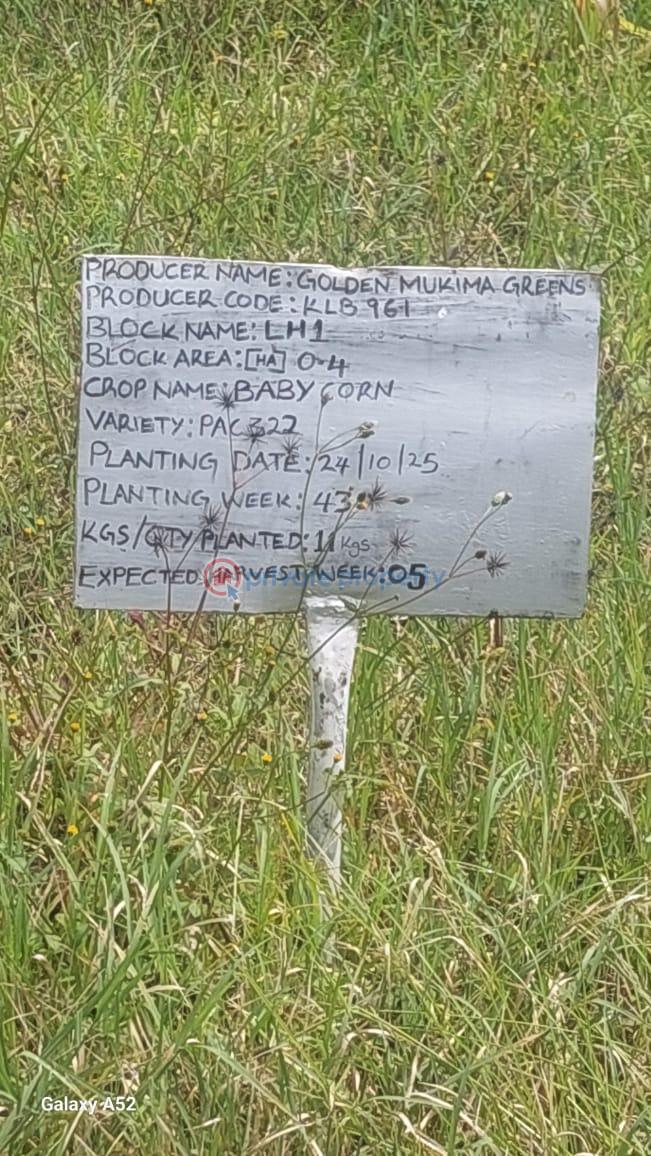 PRODUCER NAME: GOLDEN MUKIMA GREENS
PRODUCER CODE: KLB 961
BLOCK NAME: LH1
BLOCK AREA: [HA] 0.4
CROP NAME: BABY CORN
VARIETY: PAC 322
PLANTING DATE: 24/10/25
PLANTING WEEK: 43
KGS/QTY PLANTED: 11 Kgs
EXPECTED HARVEST WEEK: 05
privateproperty
Galaxy A52